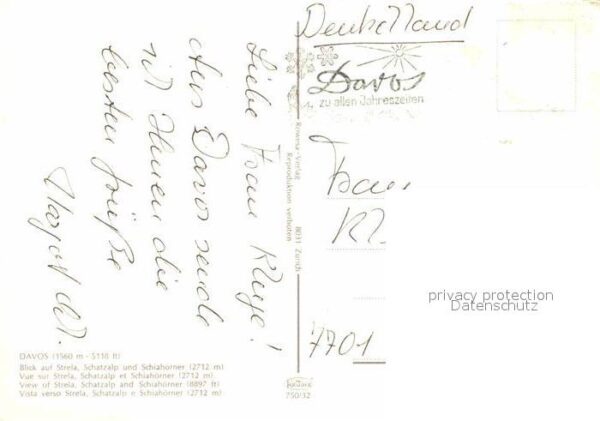 Liebe Frau Kluge!
Aus Davos sende
ich Ihnen die
besten Grüße
Margot
DAVOS (1560 m - 5118 ft)
Blick auf Strela, Schatzalp und Schiahörner (2712 m)
Vue sur Strela, Schatzalp et Schiahörner (2712 m)
View of Strela, Schatzalp and Schiahörner (8897 ft)
Vista verso Strela, Schatzalp e Schiahörner (2712 m)
Rowesa-Verlag 8031 Zürich
Reproduktion verboten
750/32
Deutschland
Davos
zu allen Jahreszeiten
Frau
Kl
7701
privacy protection
Datenschutz